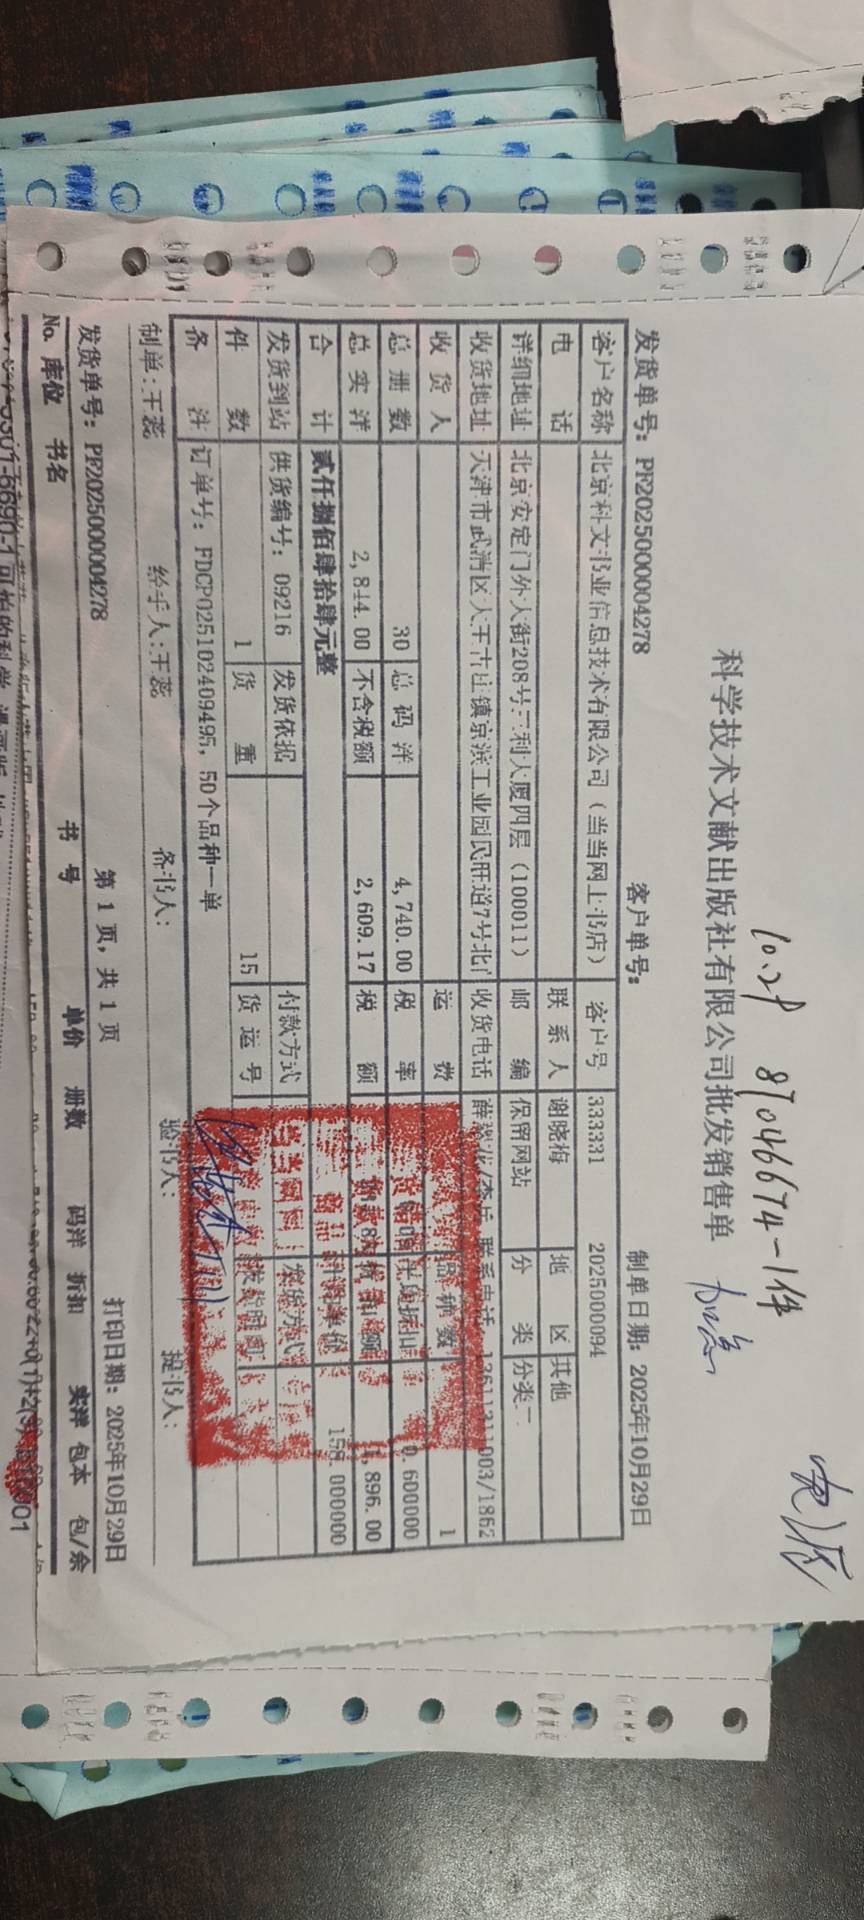 10.29 87046674-1件
科学技术文献出版社有限公司批发销售单
发货单号: PF2025000004278 客户单号: 制单日期: 2025年10月29日
客户名称 北京科文书业信息技术有限公司（当当网上书店） 客户号 333331 2025000094
电 话 联系人 谢晓梅 地 区 其他
详细地址 北京安定门外大街208号三利大厦四层（100011） 邮 编 保留网站 分 类 分类二
收货地址 天津市武清区大王古庄镇京滨工业园民旺道7号北门 收货电话 003/1862
收货人 运 费 品种数 1
总册数 30 总码洋 4,740.00 税 率 平均折扣 0.600000
总实洋 2,844.00 不含税额 2,609.17 税 额 折扣额 1,896.00
合 计 贰仟捌佰肆拾肆元整 158.000000
发货到站 供货编号: 09216 发货依据 付款方式 发货方式
件 数 1 货 重 15 货运号 发货时间
备 注 订单号: FDCP025102409495, 50个品种一单
制单:王蕊 经手人:王蕊 备书人: 验书人: 提书人:
第 1 页, 共 1 页 打印日期: 2025年10月29日
发货单号: PF2025000004278
No. 库位 书名 书 号 单价 册数 码洋 折扣 实洋 包本 包/余